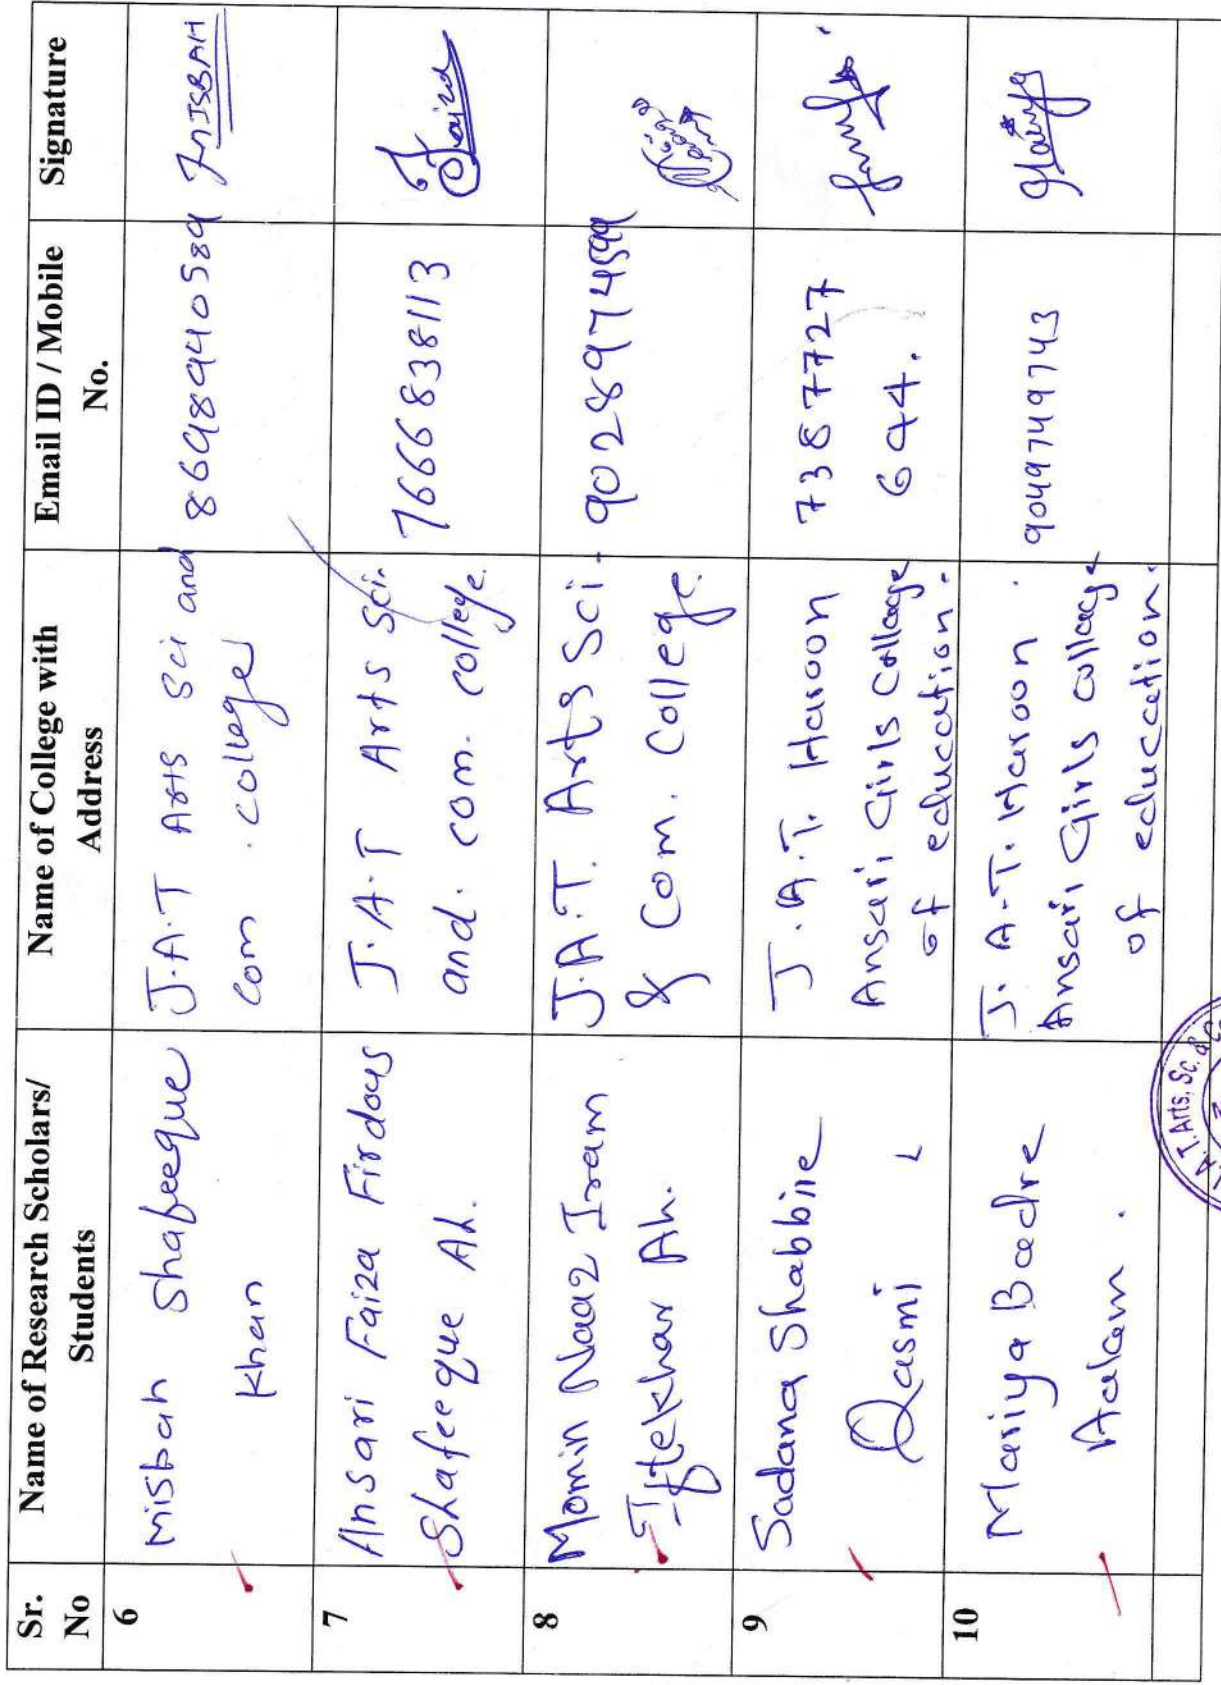 Sr. No
Name of Research Scholars/ Students
Name of College with Address
Email ID / Mobile No.
Signature
6
Misbah Shafeeque
Khan
J.A.T Arts Sci and
Com. college
8698940589
MISBAH
7
Ansari Faiza Firdous
Shafeeque Ah.
J.A.T Arts Sci.
and. com. college.
7666838113
Faiza
8
Momin Naaz Iram
Iftekhar Ah.
J.A.T. Arts Sci.
& Com. College.
9028974599
9
Sadana Shabbire
Qasmi
J.A.T. Haroon
Ansari Girls Collage
of education.
7387727
644.
10
Mariya Badre
Aalam.
J.A.T. Haroon.
Ansari Girls collage
of education.
9049749743
A.T. Arts, Sc. &